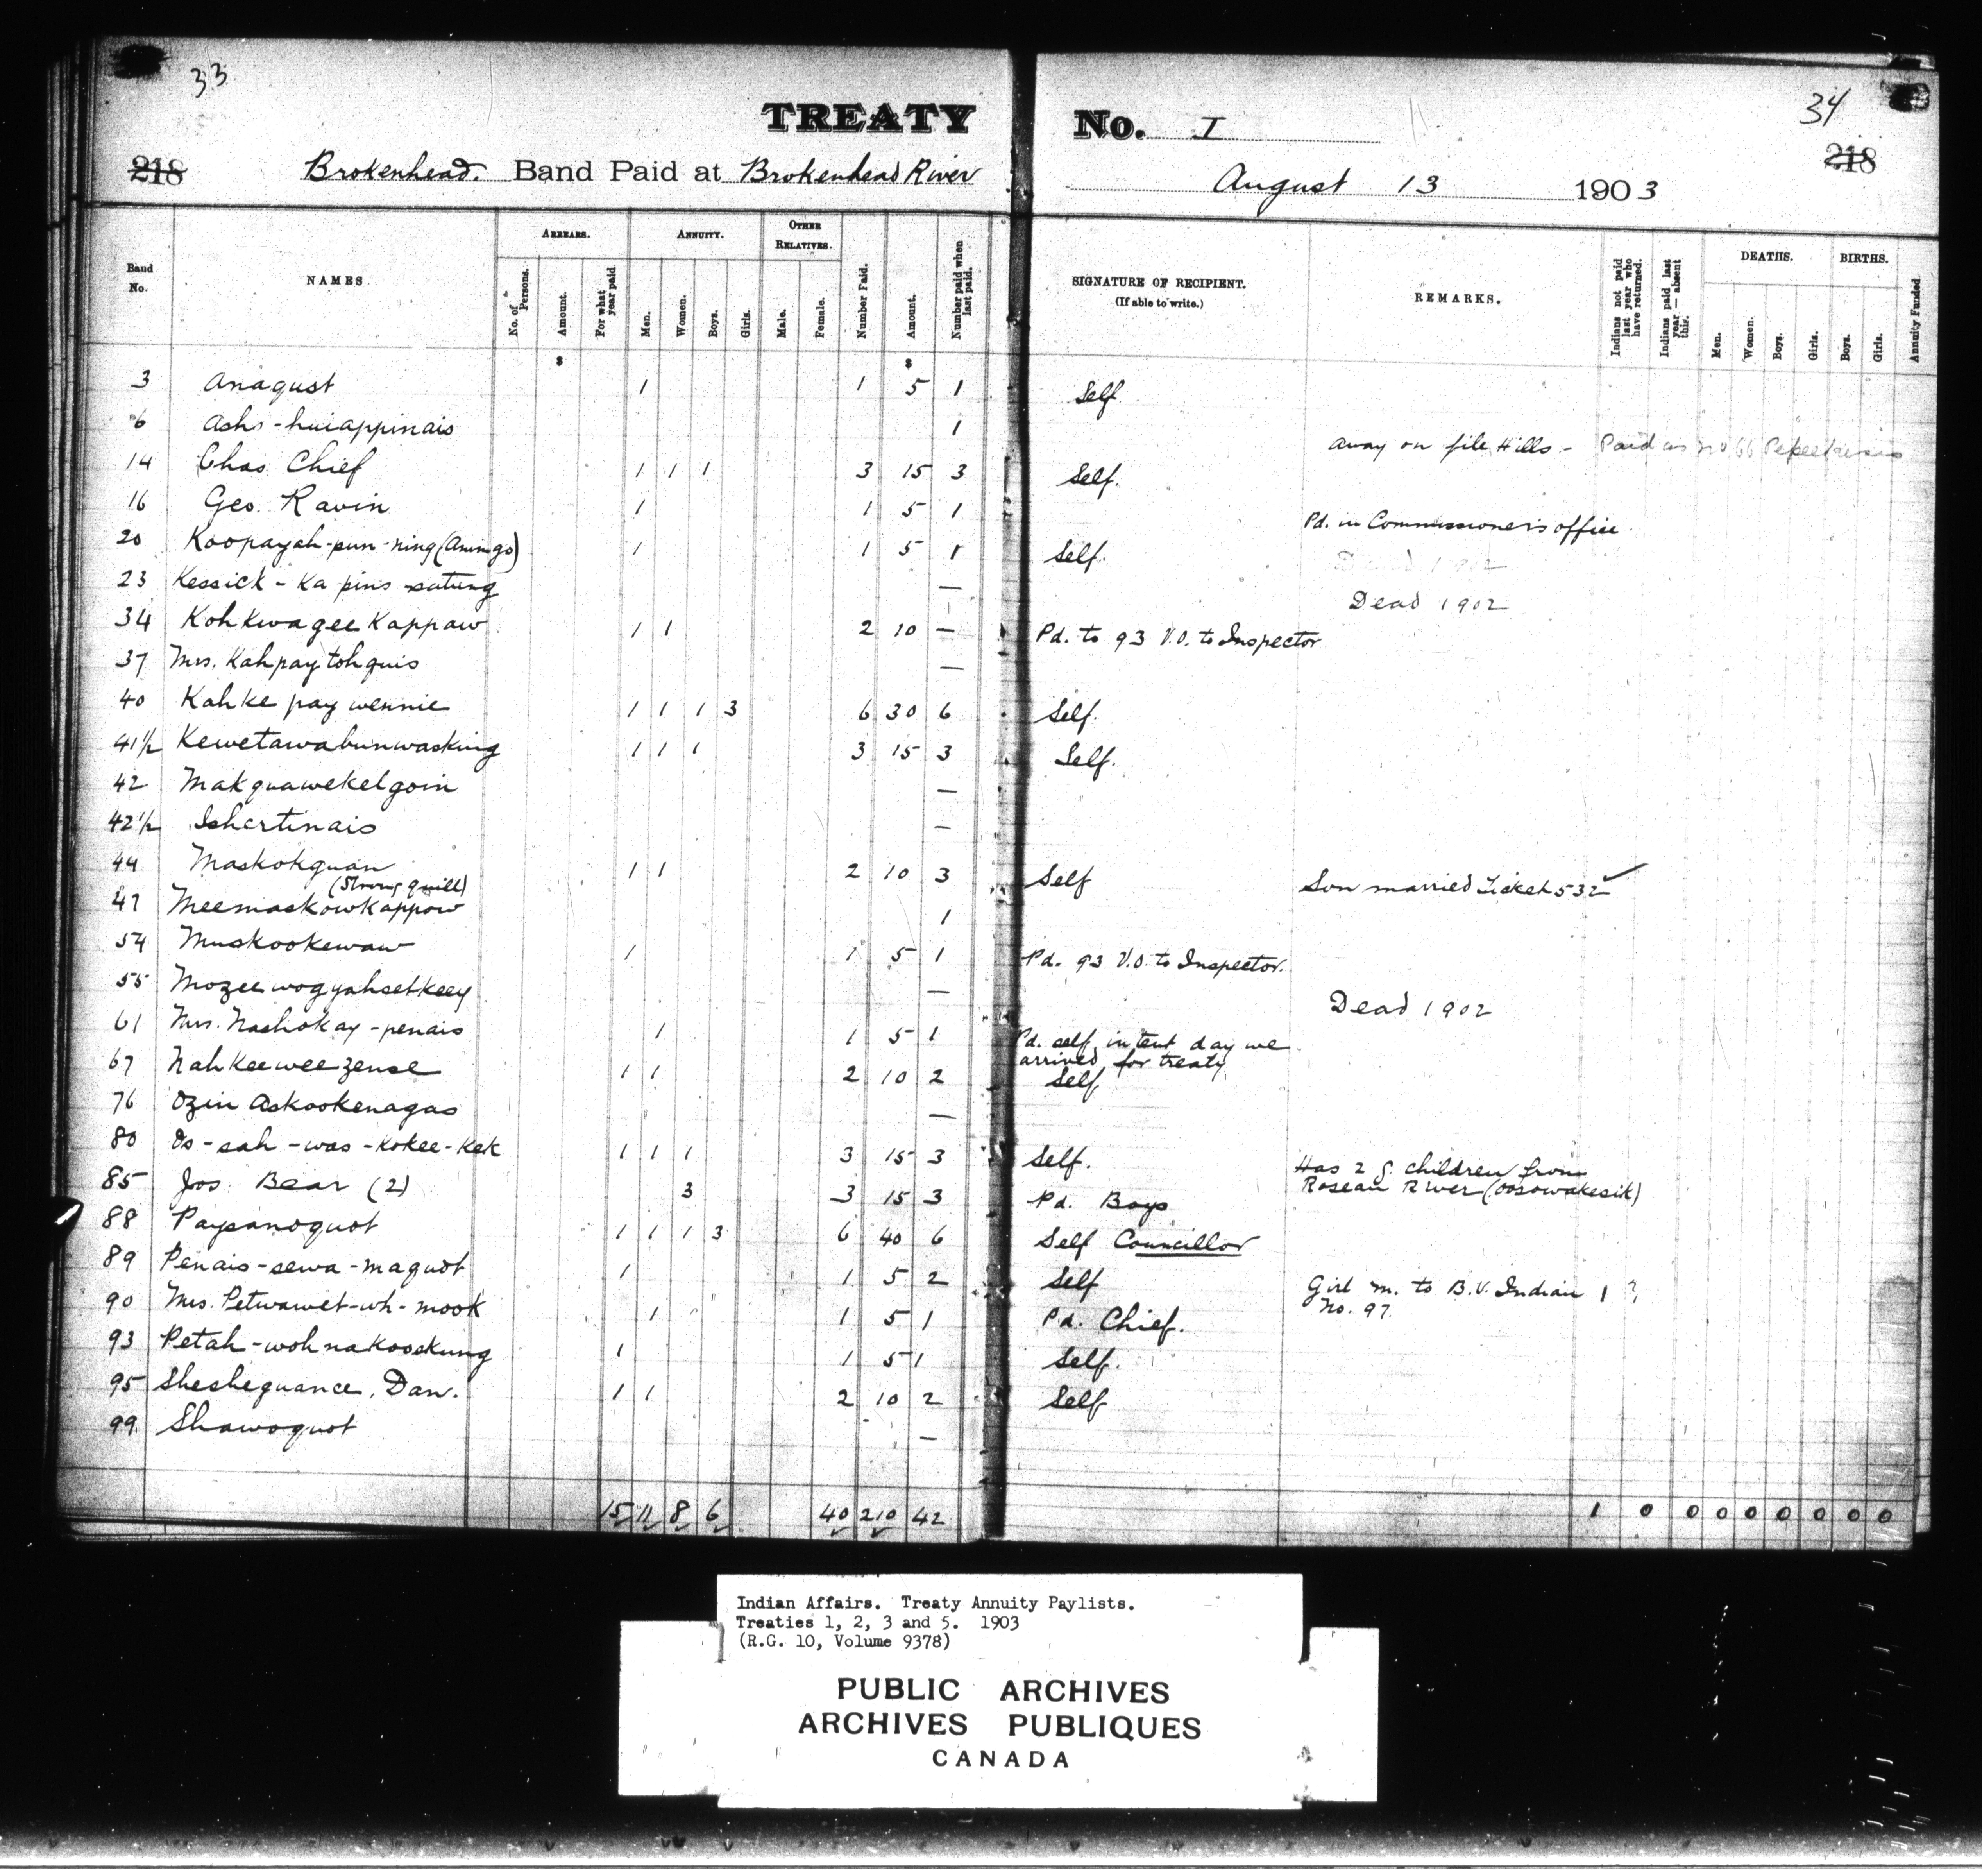 33
34
TREATY No. I
218 Brokenhead. Band Paid at Brokenhead River August 13 1903 218
Band No. NAMES ARREARS. No. of Persons. Amount. For what year paid. ANNUITY. Men. Women. Boys. Girls. OTHER RELATIVES. Male. Female. Number Paid. Amount. Number paid when last paid. SIGNATURE OF RECIPIENT. (If able to write.) REMARKS. Indians not paid last year who have returned. Indians paid last year — absent this. DEATHS. Men. Women. Boys. Girls. BIRTHS. Boys. Girls. Annuity Funded
$ $
3 Anagust 1 1 5 1 Self
6 1 away on file Hills - Paid as no 66
14 Chas Chief 1 1 1 3 15 3 Self.
16 Geo. Ravin 1 1 5 1 Pd. in Commissioner's office
20 Koopayah-pun-ning (Animgo) 1 1 5 1 Self.
23 Kessick - Ka pins satung — Dead 1902
34 Kohkwageekappaw 1 1 2 10 — Pd. to 93 V.O. to Inspector
37 Mrs. Kahpaytohquis —
40 Kahke pay wennie 1 1 1 3 6 30 6 Self.
41½ Kewetawabunwasking 1 1 1 3 15 3 Self.
42 Makquawekelgoin —
42½ Ishertinais —
44 Maskokguan 1 1 2 10 3 Self Son married Ticket 532
(Strong quill)
47 Meemaskowkappow 1
54 Muskookewaw 1 1 5 1 Pd. 93 V.O. to Inspector.
55 Mozeewogyahsetkeey — Dead 1902
61 Mrs. Nashokay-penais 1 1 5 1 Pd. self in tent day we
arrived for treaty
67 Nahkeeweezense 1 1 2 10 2 Self
76 Ozin Askookenagas —
80 Os-sah-was-kokee-kek 1 1 1 3 15 3 Self. Has 2 g. children from
Roseau River (oosowakesik)
85 Jos. Bear (2) 3 3 15 3 Pd. Boys
88 Paysanoquot 1 1 1 3 6 40 6 Self Councillor
89 Penais-sewa-maquot 1 1 5 2 Self Girl m. to B.V. Indian 1 ?
No. 97.
90 Mrs. Petwawet-wh-mook 1 1 5 1 Pd. Chief.
93 Petah-wohnakooskung 1 1 5 1 Self.
95 Sheshequance, Dan. 1 1 2 10 2 Self
99. Shawoquot —
15 11 8 6 40 210 42 1 0 0 0 0 0 0 0 0
Indian Affairs. Treaty Annuity Paylists.
Treaties 1, 2, 3 and 5. 1903
(R.G. 10, Volume 9378)
PUBLIC ARCHIVES
ARCHIVES PUBLIQUES
CANADA